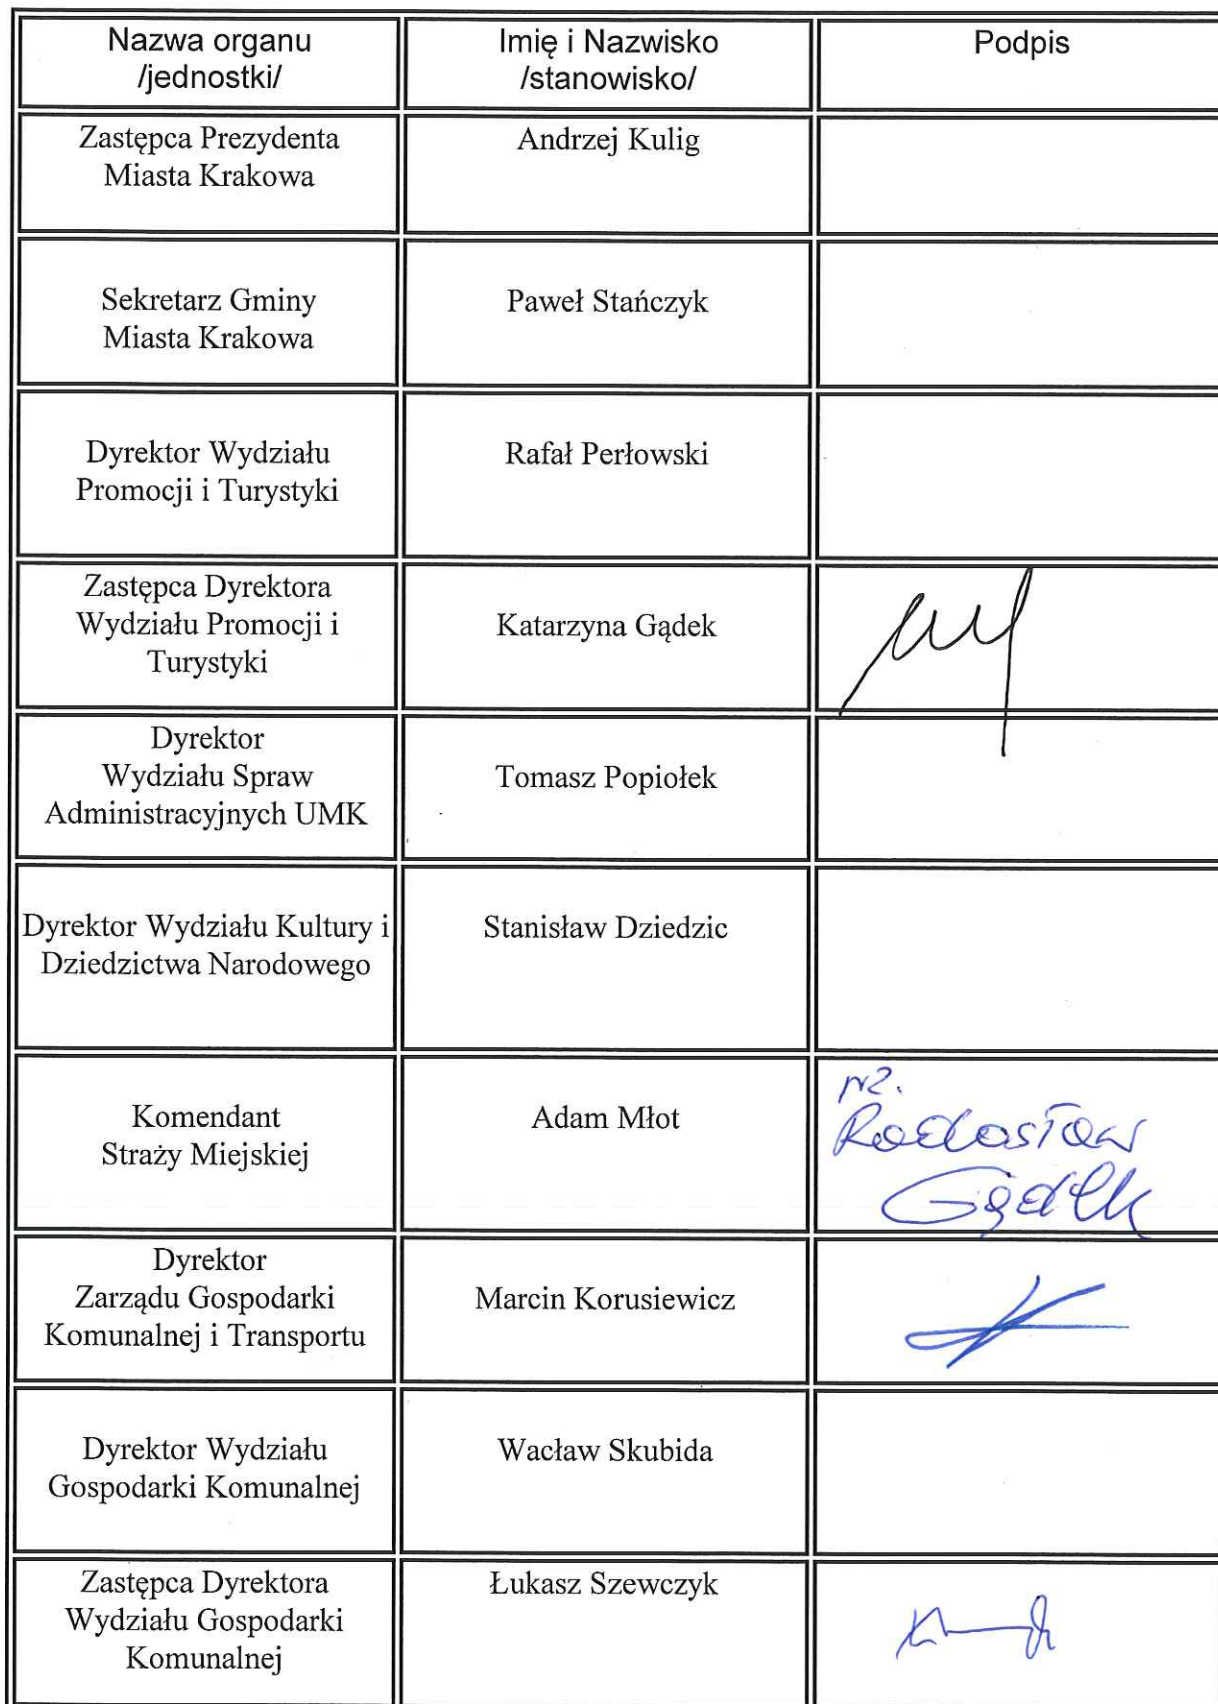 Nazwa organu
/jednostki/
Imię i Nazwisko
/stanowisko/
Podpis
Zastępca Prezydenta
Miasta Krakowa
Andrzej Kulig
Sekretarz Gminy
Miasta Krakowa
Paweł Stańczyk
Dyrektor Wydziału
Promocji i Turystyki
Rafał Perłowski
Zastępca Dyrektora
Wydziału Promocji i
Turystyki
Katarzyna Gądek
Dyrektor
Wydziału Spraw
Administracyjnych UMK
Tomasz Popiołek
Dyrektor Wydziału Kultury i
Dziedzictwa Narodowego
Stanisław Dziedzic
Komendant
Straży Miejskiej
Adam Młot
Radosław
Dyrektor
Zarządu Gospodarki
Komunalnej i Transportu
Marcin Korusiewicz
Dyrektor Wydziału
Gospodarki Komunalnej
Wacław Skubida
Zastępca Dyrektora
Wydziału Gospodarki
Komunalnej
Łukasz Szewczyk